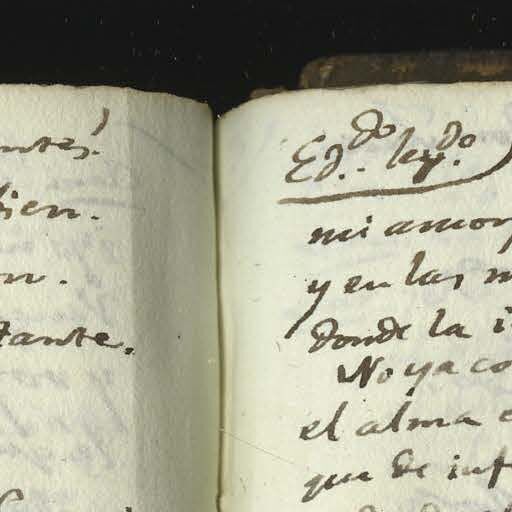 antes!
bien.
on.
tante.
Ed.do leydo.
mi amor
y en las m
donde la i
No ya co
el alma e
que de inf